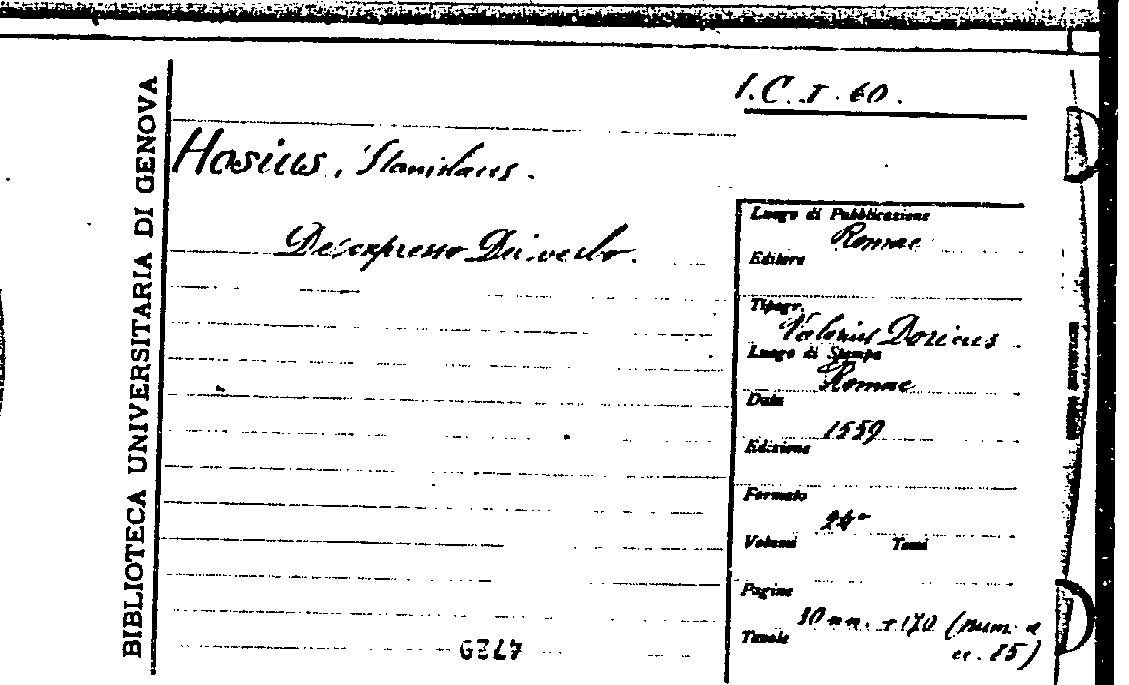 BIBLIOTECA UNIVERSITARIA DI GENOVA
1.C.I.60.
Hosius, Stanislaus.
De expresso Dei verbo.
Luogo di Pubblicazione
Romae
Editore
Tipogr.
Valerius Doricus
Luogo di Stampa
Romae
Data
1559
Edizione
Formato
24°
Volumi Tomi
Pagine
10 nn. + 170 (num. a
Tavole
cc. 15)
4729